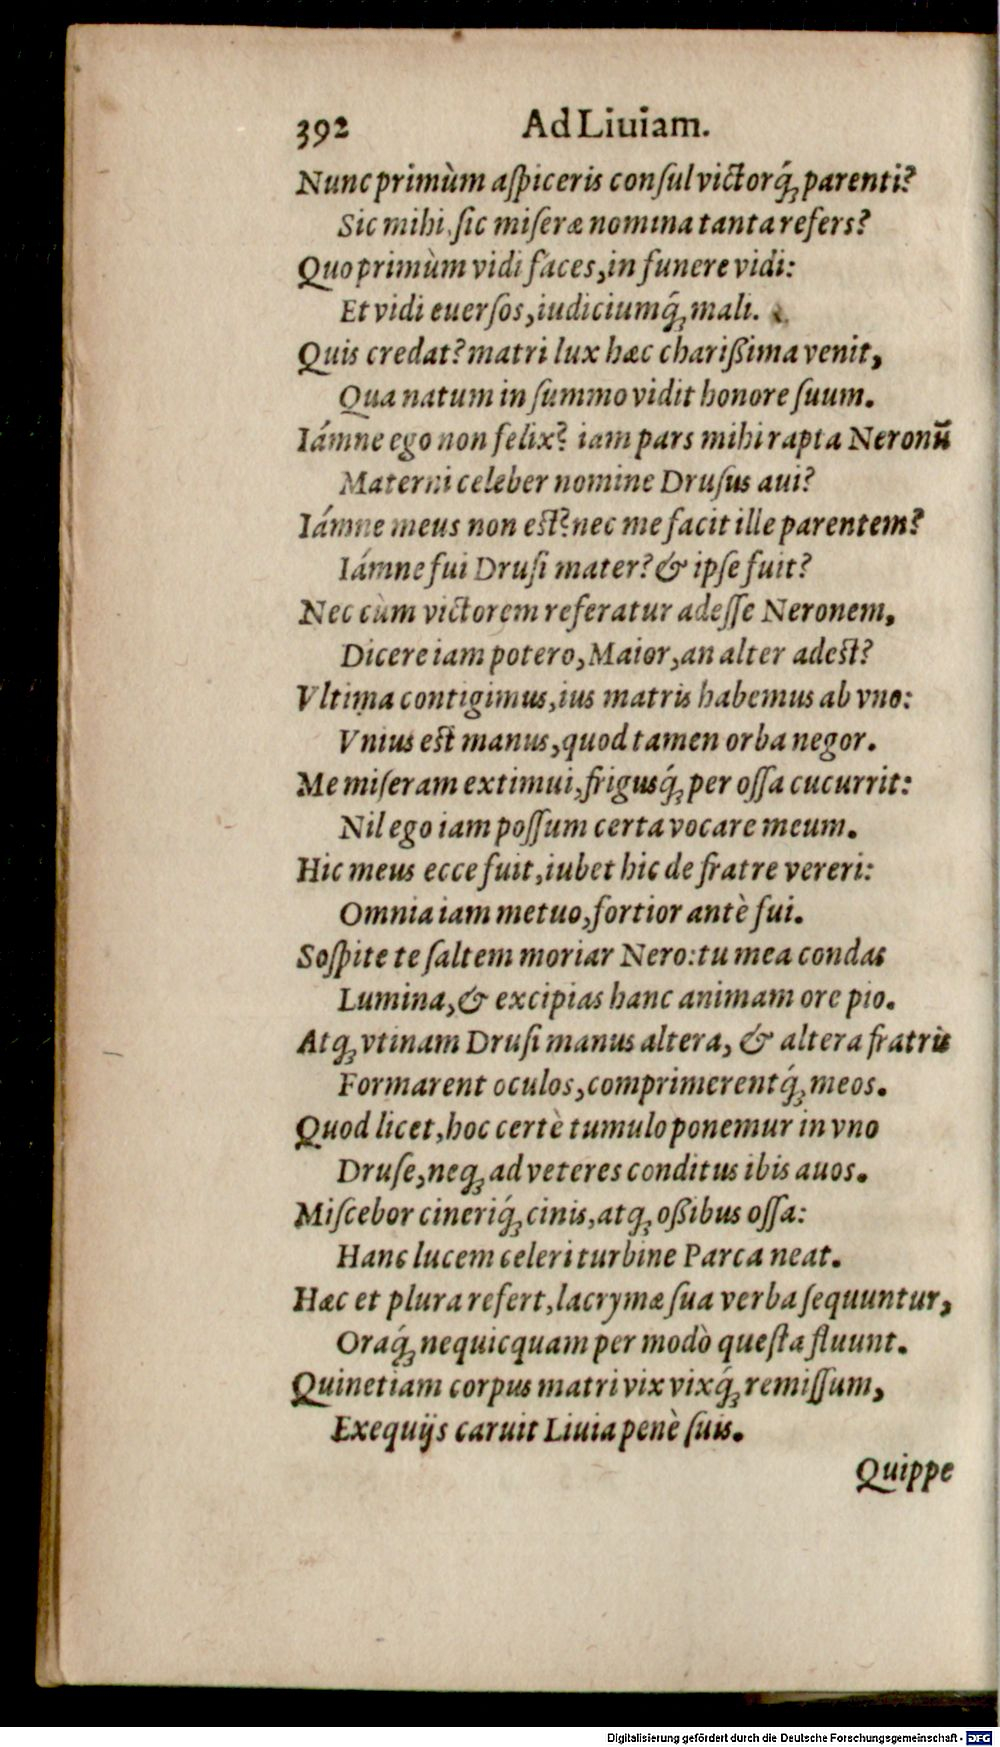 392 Ad Liuiam.
Nunc primùm aſpiceris conſul victorq́ꝫ parenti?
Sic mihi, ſic miſeræ nomina tanta refers?
Quo primùm vidi faces, in funere vidi:
Et vidi euerſos, iudiciumq́ꝫ mali.
Quis credat? matri lux hæc charißima venit,
Qua natum in ſummo vidit honore ſuum.
Iámne ego non felix? iam pars mihi rapta Neronū
Materni celeber nomine Druſus aui?
Iámne meus non est? nec me facit ille parentem?
Iámne fui Druſi mater? & ipſe fuit?
Nec cùm victorem referatur adeſſe Neronem,
Dicere iam potero, Maior, an alter adest?
Vltima contigimus, ius matris habemus ab vno:
Vnius est manus, quod tamen orba negor.
Me miſeram extimui, frigusq́ꝫ per oſſa cucurrit:
Nil ego iam poſſum certa vocare meum.
Hic meus ecce fuit, iubet hic de fratre vereri:
Omnia iam metuo, fortior antè fui.
Soſpite te ſaltem moriar Nero: tu mea condas
Lumina, & excipias hanc animam ore pio.
Atqꝫ vtinam Druſi manus altera, & altera fratris
Formarent oculos, comprimerentq́ꝫ meos.
Quod licet, hoc certè tumulo ponemur in vno
Druſe, neqꝫ ad veteres conditus ibis auos.
Miſcebor cineriq́ꝫ cinis, atqꝫ oßibus oſſa:
Hanc lucem celeri turbine Parca neat.
Hæc et plura refert, lacrymæ ſua verba ſequuntur,
Oraq́ꝫ nequicquam per modò queſta fluunt.
Quinetiam corpus matri vix vixq́ꝫ remiſſum,
Exequijs caruit Liuia penè ſuis.
Quippe
Digitalisierung gefördert durch die Deutsche Forschungsgemeinschaft - DFG